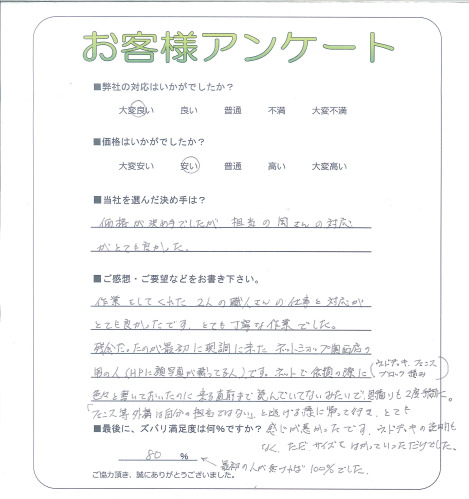 お客様アンケート
■弊社の対応はいかがでしたか？
大変良い 良い 普通 不満 大変不満
■価格はいかがでしたか？
大変安い 安い 普通 高い 大変高い
■当社を選んだ決め手は？
価格が決め手でしたが 担当の岡さんの対応
がとても良かした。
■ご感想・ご要望などをお書き下さい。
作業をしてくれた2人の職人さんの仕事と対応が
とても良かったです。とても丁寧な作業でした。
残念だったのが最初に現調に来た ネットショップ
の人(HPに顔写真が載ってる人)です。ネットで依頼の際に(ウッドデッキ、フェンス
ブロック積み)
色々と書いておいたのに 来る直前まで読んでいてないみたいで、見積りも2度手間に。
「フェンス等外構は自分の担当ではない」と逃げる様に帰って行き、とても
■最後に、ズバリ満足度は何%ですか？ 感じが悪かったです。ウッドデッキの説明も
なく、ただサイズをはかっていっただけでした。
80 %
←最初の人が来なければ100%でした。
ご協力頂き、誠にありがとうございました。